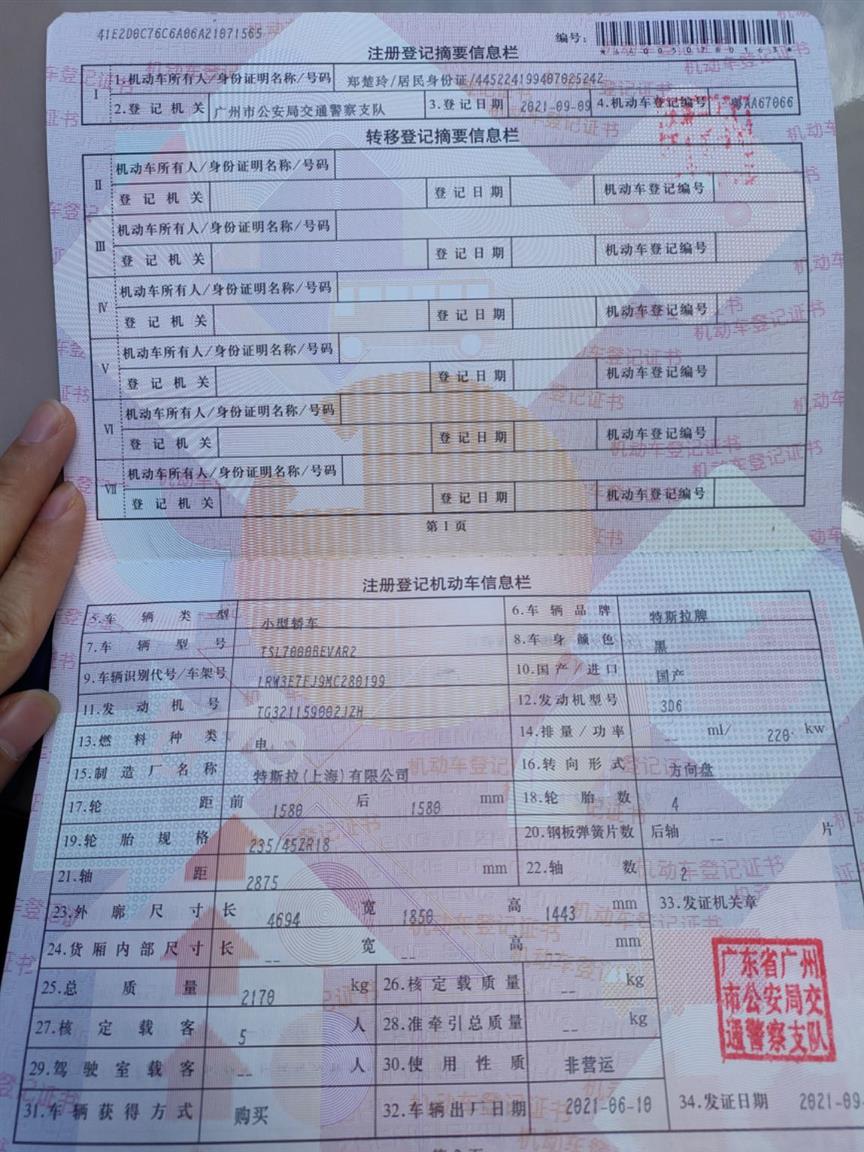 41E2D0C76C6A06A21071565
编号：
注册登记摘要信息栏
I 1.机动车所有人/身份证明名称/号码 郑楚玲/居民身份证/445224199407025242
2.登记机关 广州市公安局交通警察支队 3.登记日期 2021-09-09 4.机动车登记编号 粤AA67066
转移登记摘要信息栏
II 机动车所有人/身份证明名称/号码
登记机关 登记日期 机动车登记编号
III 机动车所有人/身份证明名称/号码
登记机关 登记日期 机动车登记编号
IV 机动车所有人/身份证明名称/号码
登记机关 登记日期 机动车登记编号
V 机动车所有人/身份证明名称/号码
登记机关 登记日期 机动车登记编号
VI 机动车所有人/身份证明名称/号码
登记机关 登记日期 机动车登记编号
VII 机动车所有人/身份证明名称/号码
登记机关 登记日期 机动车登记编号
第1页
注册登记机动车信息栏
5.车辆类型 小型轿车 6.车辆品牌 特斯拉牌
7.车辆型号 TSL7000BEVAR2 8.车身颜色 黑
9.车辆识别代号/车架号 LRW3E7FJ9MC280199 10.国产/进口 国产
11.发动机号 TG321159002JZH 12.发动机型号 3D6
13.燃料种类 电 14.排量/功率 -- ml/ 220 kw
15.制造厂名称 特斯拉(上海)有限公司 16.转向形式 方向盘
17.轮距 前 1580 后 1580 mm 18.轮胎数 4
19.轮胎规格 235/45ZR18 20.钢板弹簧片数 后轴 -- 片
21.轴距 2875 mm 22.轴数 2
23.外廓尺寸 长 4694 宽 1850 高 1443 mm 33.发证机关章
24.货厢内部尺寸 长 -- 宽 -- 高 -- mm
25.总质量 2170 kg 26.核定载质量 -- kg
27.核定载客 5 人 28.准牵引总质量 -- kg
29.驾驶室载客 -- 人 30.使用性质 非营运
广东省广州
市公安局交
通警察支队
31.车辆获得方式 购买 32.车辆出厂日期 2021-06-10 34.发证日期 2021-09-